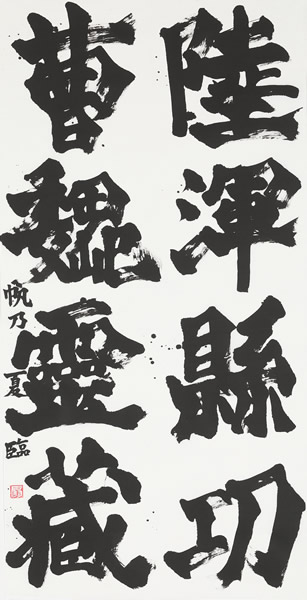 陸渾縣功
曹魏靈藏
帆乃夏臨